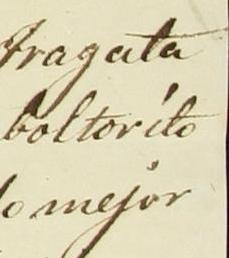 Fragata
boltorito
lo mejor